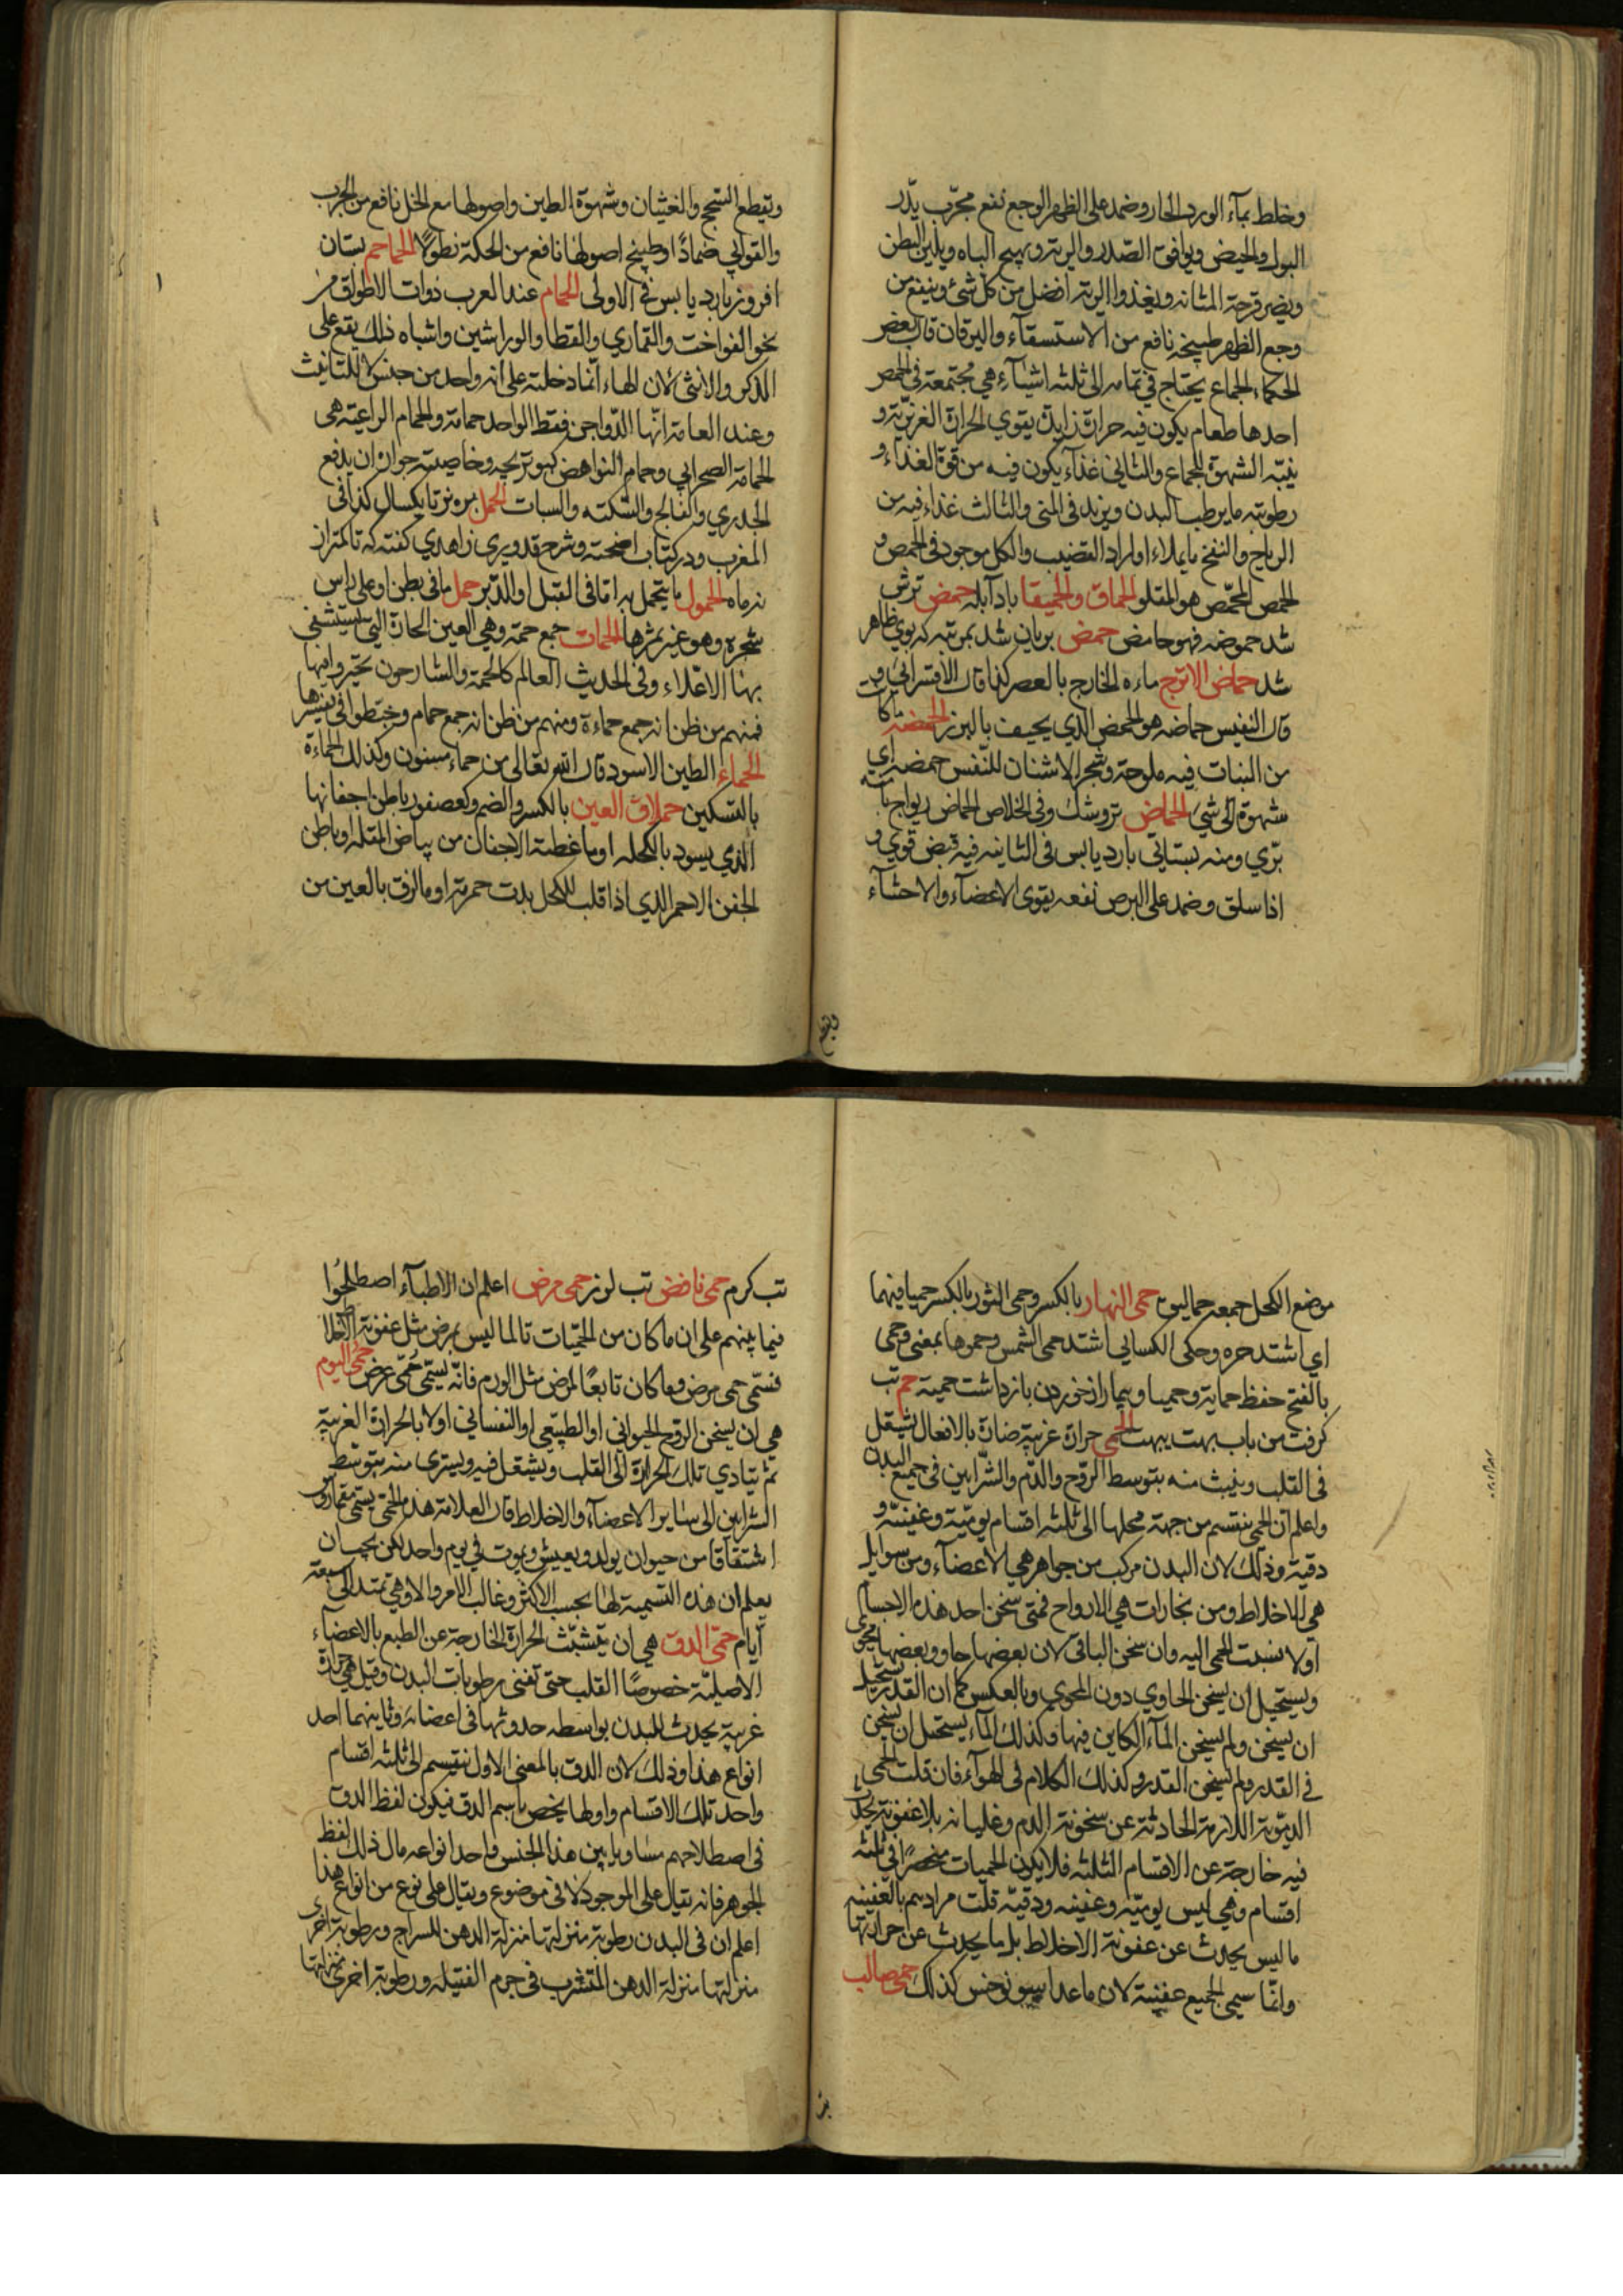 وخلط بمآء الورد الحار وضمد على الظهر الوجع نفع مجرّب يدّر
البول والحيض ويوافق الصّدر والريه ويهيج الباه ويلين البطن
ويضر قرحة المثانه ويغذوا الريه افضل من كل شئ وينفع من
وجع الظهر طبيخه نافع من الاستسقآء واليرقان قال بعض
الحكماء الجماع يحتاج في تمامه الى ثلثه اشيآء هي مجتمعة في الحمص
احدها طعام يكون فيه حرارة زايدة يقوي الحرارة الغريزيّة و
ينبّه الشهوة للجماع والثاني غذآء يكون فيه من قوة الغذاء و
رطوبته ما يرطب البدن ويزيد في المنى والثالث غذاء فيه من
الرياح والنفخ ما يملاء اوراد القضيب والكل موجود في الحمص و
الحمص المحمّص هو المقلو الحماق والحميقا بادآبله حمض ترش
شد حموضه فهو حامض حمض بريان شد بمرتبه كه بوي ظاهر
شد حماض الاترج ماءه الخارج بالعصر كذا قال الاقسرائي و
قال النفيس حماضه هو الحمض الذي يحيف بالبزر الحمضه ما كان
من النبات فيه ملوحة وشجر الاشنان للنّفس حمضه اي
شهوة الى شئ الحماض ترو شك وفي الخلاص الحماض ريواج باته
برّي ومنه بستاني بارد يابس في الثانيه فيه قبض قوي و
اذا سلق وضمد على البرص نفعه يقوى الاعضآء والاحشآء
ويقطع
ويقطع التسحج والغثيان وشهوة الطين واصولها مع الخل نافع من الجرب
والقوابي ضماداً او طبيخ اصولها نافع من الحكة نطولاً الحماحم بستان
افروز بارد يابس في الاولى الحمام عند العرب ذوات الاطواق من
نحو الفواخت والقماري والقطا والوراشين واشباه ذلك يقع على
الذكر والانثى لان الهاء انّما دخلته على انه واحد من جنس لا للتانيث
وعند العامة انّها الدّواجن فقط الواحد حمامة والحمام الراعيّة هى
الحمامة الصحرابي وحمام النواهض كبوتر بچه وخاصيته جواره ان يدفع
الجدري والفالج والسّكته والسبات الحمل بره نر تا يكسال كذا في
المغرب ودر كتاب اضحيته وشرح قدويري زاهدي كفته كه تا كمتر از
نه ماه الحمول ما يتحمل به امّا في القبل او الدّبر حمل ما في بطن او على راس
شجره وهو عنبر ثمرها الحمات جمع حمة وهي العين الحارة التي يستشفي
بهنا الاعّلاء وفي الحديث العالم كالحمة والشارحون تحيّروا فيها
فمنهم من ظن انه جمع حماءة ومنهم من ظن انه جمع حمام وخبّطوا في تفسيرها
الحماء الطين الاسود قال الله تعالى من حماء مسنون وكذلك الحماءة
بالتسكين حملاق العين بالكسر والضم وكعصفور باطن اجفانها
الذي يسود بالكحله او ما غطته الاجفان من بياض المقله او باطن
الجفن الاحمر الذي اذا قلب للكحل بدت حمرته او ما لزق بالعين من
موضع الكحل جمعه حماليق حمى النهار بالكسر وحمى التنور بالكسر حميا فيهما
اي اشتد حره وحكى الكسايي اشتد حمى الشمس وحموها بمعنى وحمى
بالفتح حفظ حماية وحميا وبيمار از خوردن باز داشت حمية حم تب
كرفت من باب بهت يبهت الحمى حرارة غريبة ضارة بالافعال تشتعل
في القلب وينبث منه بتوسط الروّح والدّم والشّرايين في جميع البدن
واعلم ان الحمى ينقسم من جهة محلها الى ثلثه اقسام يوميّة وعفينيّه و
دقيّة وذلك لان البدن مركب من جماهر هي الاعضآء ومن سوايل
هي الاخلاط ومن بخارات هي الارواح فمتى سخن احد هذه الاجسام
اولا نسبت الحمى اليه وان سخن الباقي لان بعضها حاو وبعضها محوى
ويستحيل ان يسخن الحاوي دون المحوي وبالعكس كما ان القدر يستحيل
ان يسخن ولم يسخن المآء الكاين فيها وكذلك المآء يستحيل ان يسخن
في القدر ولم يسخن القدر وكذلك الكلام في الهوآء فان قلت الحمى
الدمّويّة اللازمة الحادثة عن سخونة الدم وغليانه بلا عفونة يحدث
فيه خارجة عن الاقسام الثلثه فلا يكون الحميات منحصرًا في ثلثة
اقسام وهي ليس يوميّه وعفينه ودقيّه قلت مرادهم بالعفينه
ما ليس يحدث عن عفونة الاخلاط بل ما يحدث عن حرارتها
وانّما سمي الجميع عفينة لان ما عدا سونوخس كذلك حمى صالب
تب كرم حمى نافض تب لرز حمى مرض اعلم ان الاطبآء اصطلحُوا
فيما بينهم على ان ما كان من الحميّات تالما ليس بمرض مثل عفونة الاخلاط
فسمّى حمى مرض وما كان تابعًا لمرض مثل الورم فانّه يسمّى حُمّى عرض حمّى اليوم
هي ان يسخن الروح الحيواني او الطبّيعي او النفساني اولا بالحرارة الغريبة
ثم يتادي تلك الحرارة الى القلب ويشتعل فيه ويسترى منه بتوسّط
الشرايين الى ساير الاعضآء والاخلاط قال العلامة هذه الحمّى يسمى مقماروس
اشتقاقا من حيوان يولد ويعيش ويموت في يوم واحد لكن يجب ان
يعلم ان هذه التسمية لها بحسب الاكثر وغالب الامر والا وهي تمتد الى سبعة
آيام حمّى الدق هي ان يتشبّث الحرارة الخارجة عن الطبع بالاعضآء
الاصليّة خصوصًا القلب حتى تفنى رطوبات البدن وقيل هي حرارة
غريبة يحدث للبدن بواسطه حدوثها في اعضايه وثانيهما احد
انواع هذا وذلك لان الدق بالمعنى الاول ينقسم الى ثلثه اقسام
واحد تلك الاقسام واولها يخص باسم الدق فيكون لفظ الدق
في اصطلاحهم مساويا بين هذا الجنس واحد انواعه مال ذلك لفظ
الجوهر فانه يقال على الموجود لا في موضوع ويقال على نوع من انواع هذا
اعلم ان في البدن رطوبة منزلتها منزلة الدهن للسراج ورطوبة اخرى
منزلتها منزلة الدهن المتشرب في جرم الفتيله ورطوبة اخرى منزلتها